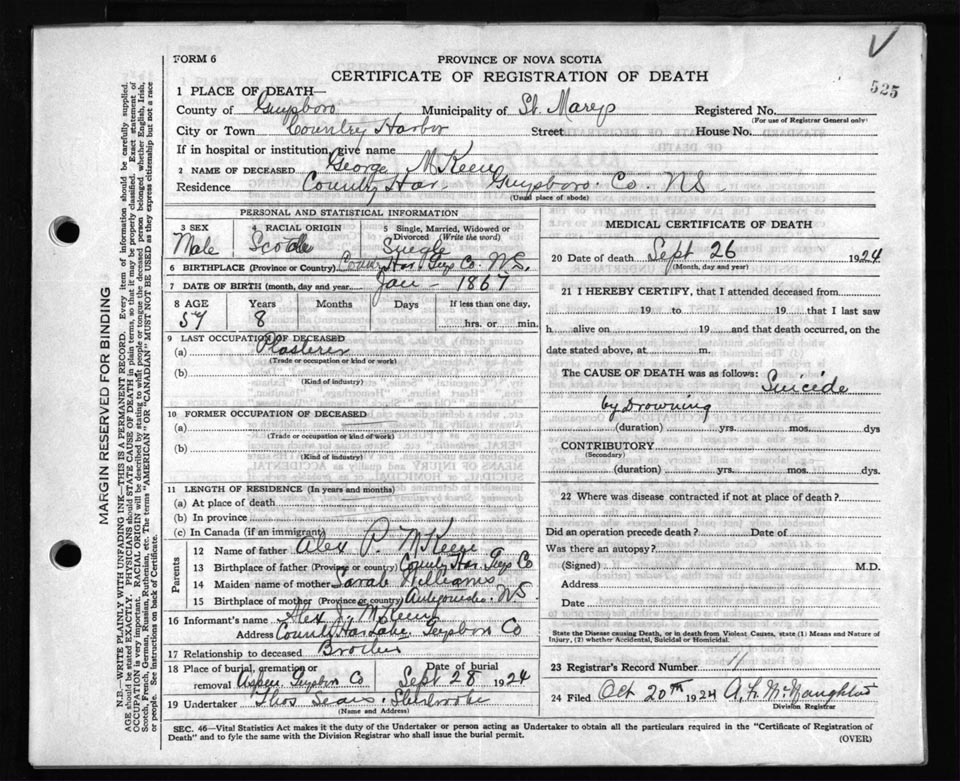 FORM 6
PROVINCE OF NOVA SCOTIA
CERTIFICATE OF REGISTRATION OF DEATH
V
525
1 PLACE OF DEATH—
County of Guysboro Municipality of St. Marys Registered No.
(For use of Registrar General only)
City or Town Country Harbor Street House No.
If in hospital or institution, give name
2 NAME OF DECEASED George McKeen
Residence Country Har. Guysboro. Co. NS
(Usual place of abode)
PERSONAL AND STATISTICAL INFORMATION
3 SEX 4 RACIAL ORIGIN 5 Single, Married, Widowed or
Divorced (Write the word)
Male Scotch Single
6 BIRTHPLACE (Province or Country) Country Har. Guy Co. NS.
7 DATE OF BIRTH (month, day and year) Jan - 1867
8 AGE Years Months Days If less than one day,
57 8 hrs. or min.
9 LAST OCCUPATION OF DECEASED
(a) Plasterer
(Trade or occupation or kind or work)
(b)
(Kind of industry)
10 FORMER OCCUPATION OF DECEASED
(a)
(Trade or occupation or kind or work)
(b)
(Kind of industry)
11 LENGTH OF RESIDENCE (In years and months)
(a) At place of death
(b) In province
(c) In Canada (if an immigrant)
Parents
12 Name of father Alex P. McKeen
13 Birthplace of father (Province or country) Country Har. Guys Co
14 Maiden name of mother Sarah Williams
15 Birthplace of mother (Province or country) NS.
16 Informant's name Alex J. McKeen
Address Country Harbour Guysboro Co
17 Relationship to deceased Brother
18 Place of burial, cremation or Date of burial
removal Aspen. Guysboro Co Sept 28 1924
19 Undertaker Thos Sears. Sherbrooke
(Name and Address)
MEDICAL CERTIFICATE OF DEATH
20 Date of death Sept 26 1924
(Month, day and year)
21 I HEREBY CERTIFY, that I attended deceased from
19 to 19 that I last saw
h alive on 19 and that death occurred, on the
date stated above, at m.
The CAUSE OF DEATH was as follows: Suicide
by Drowning
(duration) yrs. mos. dys
CONTRIBUTORY
(Secondary)
(duration) yrs. mos. dys.
22 Where was disease contracted if not at place of death?
Did an operation precede death? Date of
Was there an autopsy?
(Signed) M.D.
Address
Date
State the Disease causing Death, or in death from Violent Causes, state (1) Means and Nature of
Injury, (2) whether Accidental, Suicidal or Homicidal.
23 Registrar's Record Number 11
24 Filed Oct 20th 1924 A. L. McNaughton
Division Registrar
SEC. 46—Vital Statistics Act makes it the duty of the Undertaker or person acting as Undertaker to obtain all the particulars required in the "Certificate of Registration of
Death" and to fyle the same with the Division Registrar who shall issue the burial permit. (OVER)
MARGIN RESERVED FOR BINDING
N.B.—WRITE PLAINLY WITH UNFADING INK—THIS IS A PERMANENT RECORD. Every item of information should be carefully supplied.
AGE should be stated EXACTLY. PHYSICIANS should STATE CAUSE OF DEATH in plain terms, so that it may be properly classified. Exact statement of
OCCUPATION is very important. RACIAL ORIGIN will be described by stating to what people or tongue the deceased person belonged whether English, Irish,
Scotch, French, German, Russian, Ruthenian, etc. The terms "AMERICAN" OR "CANADIAN" MUST NOT BE USED as they express citizenship but not a race
or people. See instructions on back of Certificate.